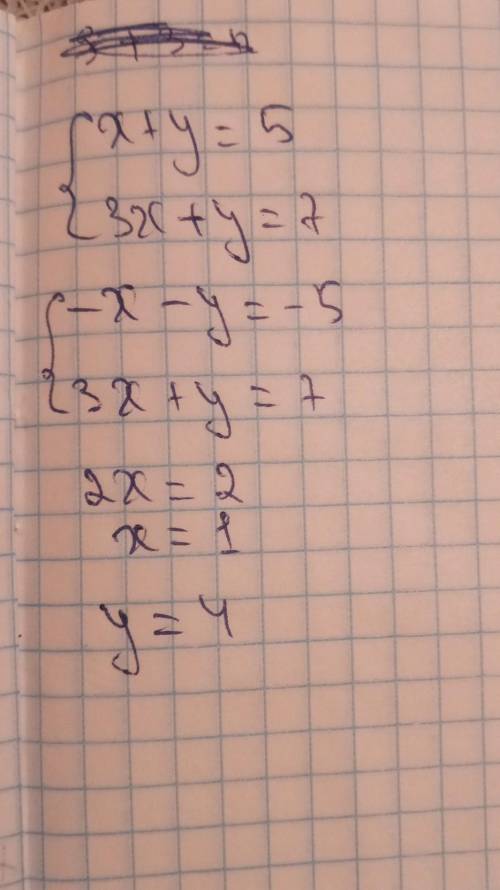 x + y = 5
3x + y = 7
-x - y = -5
3x + y = 7
2x = 2
x = 1
y = 4